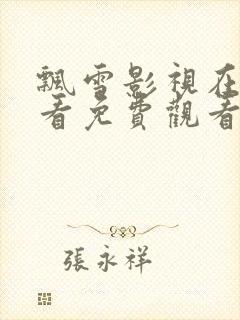 飄雪影視在
看免費觀看
張永祥